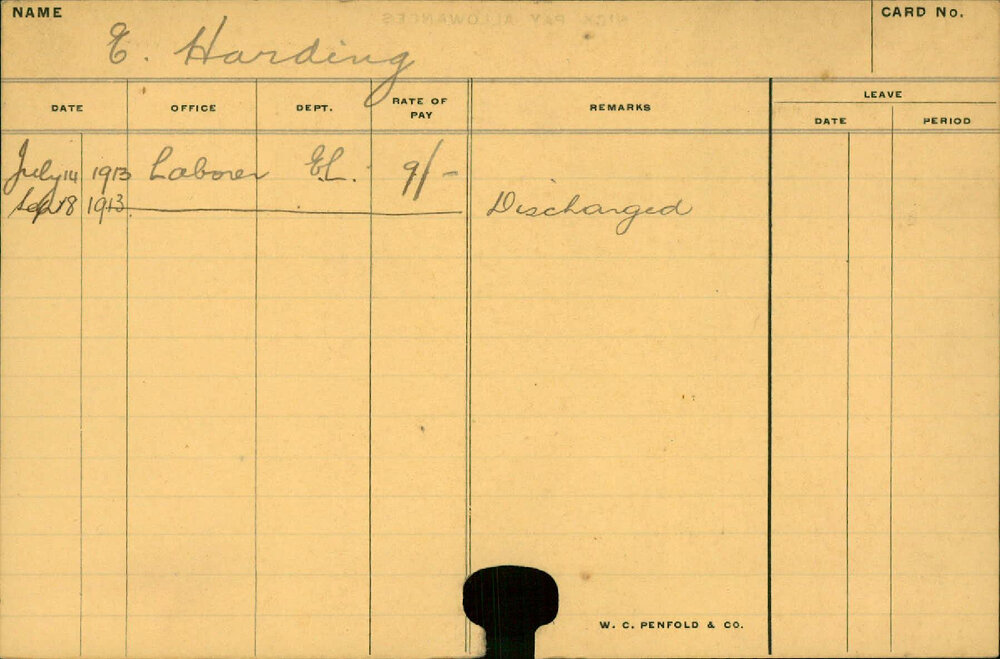 NAME
E. Harding
CARD No.
DATE OFFICE DEPT. RATE OF PAY REMARKS LEAVE
DATE PERIOD
July 14 1913 Laborer E.L. 9/-
Sep 18 1913 Discharged
W. C. PENFOLD & CO.
SICK PAY ALLOWANCES